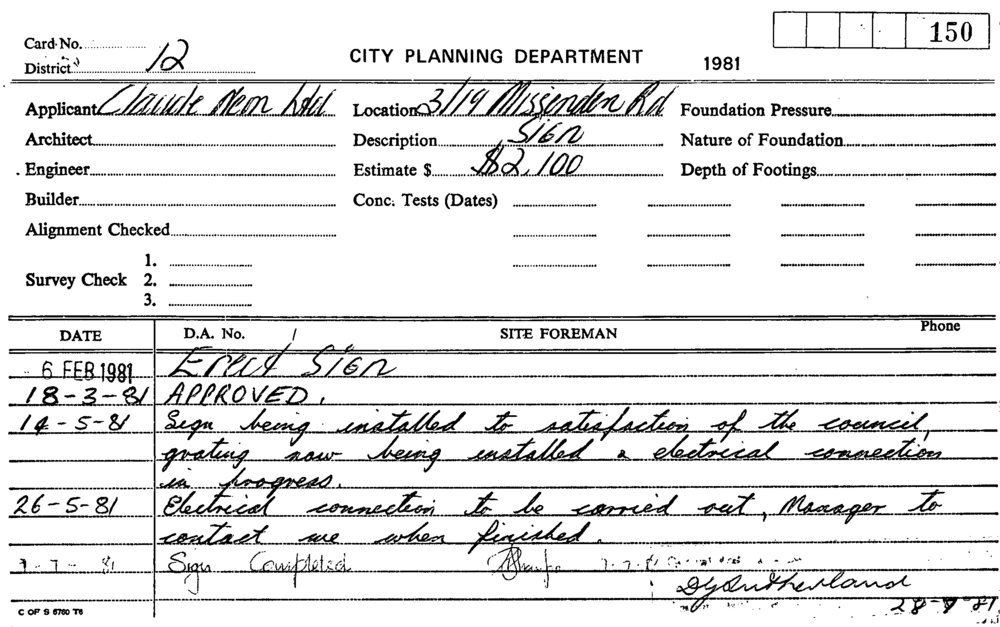 150
Card No.
District 12
CITY PLANNING DEPARTMENT 1981
Applicant Claude Neon Ltd Location 3/19 Missenden Rd Foundation Pressure
Architect Description Sign Nature of Foundation
Engineer Estimate $ $2,100 Depth of Footings
Builder Conc. Tests (Dates)
Alignment Checked
1.
Survey Check 2.
3.
DATE D.A. No. SITE FOREMAN Phone
6 FEB 1981 Erect Sign
18-3-81 APPROVED.
14-5-81 Sign being installed to satisfaction of the council,
grating now being installed & electrical connection
in progress.
26-5-81 Electrical connection to be carried out, Manager to
contact me when finished.
7-7-81 Sign Completed 7-7-81
DGSutherland
C OF S 6760 T6 28-9-81